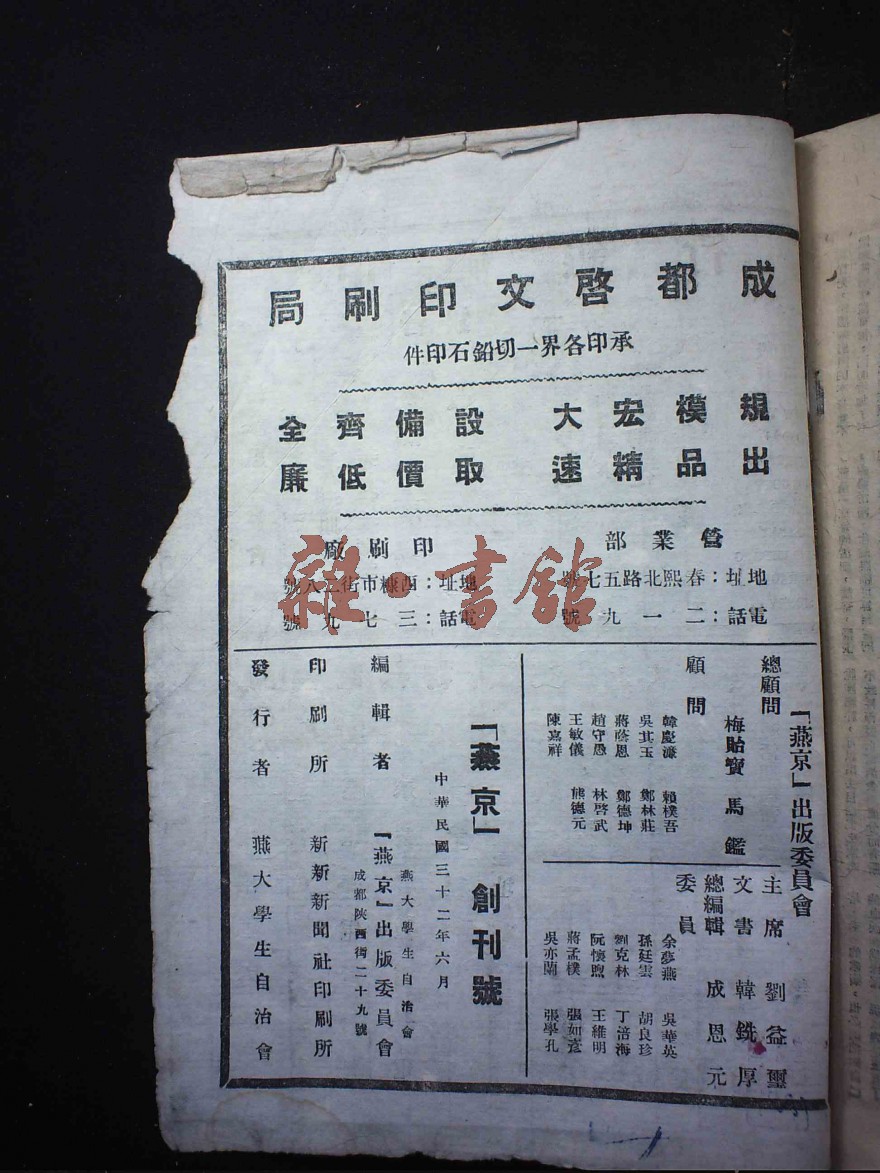 成都啓文印刷局
承印各界一切鉛石印件
規模宏大 設備齊全
出品精速 取價低廉
營業部
地址：春熙北路五七號
電話：二一九號
印刷廠
地址：西糠市街二八號
電話：三七九號
「燕京」出版委員會
總顧問
梅貽寶 馬鑑
顧問
韓慶濂 賴樸吾
吳其玉 鄭林莊
蔣蔭恩 鄭德坤
趙守愚 林啓武
王敏儀 熊德元
陳嘉祥
主席 劉益璽
文書 韓銑厚
總編輯 成恩元
委員
余夢燕 吳華英
孫廷雲 胡良珍
劉克林 丁涪海
阮懷煦 王維明
蔣孟樸 張如彥
吳亦蘭 張學孔
「燕京」創刊號
中華民國三十二年六月
編輯者 燕大學生自治會
『燕京』出版委員會
成都陝西街二十九號
印刷所 新新新聞社印刷所
發行者 燕大學生自治會
雜·書館